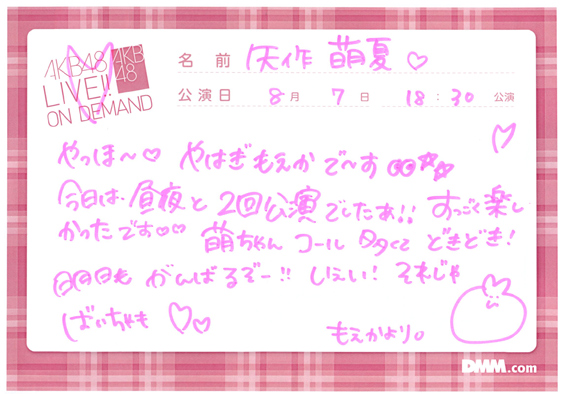 AKB48
LIVE!!
ON DEMAND
AKB
48
名前 矢作 萌夏♡
公演日 8月 7日 18:30 公演
やっほ〜♡ やはぎもえかで〜す
今日は、昼夜と2回公演でしたあ!! すっごく楽し
かったです♡♡ 萌ちゃんコール多くてどきどき!
明日も がんばるぞー!! しえい! それじゃ
ばいちゃも ♡♡
もえかより。
DMM.com